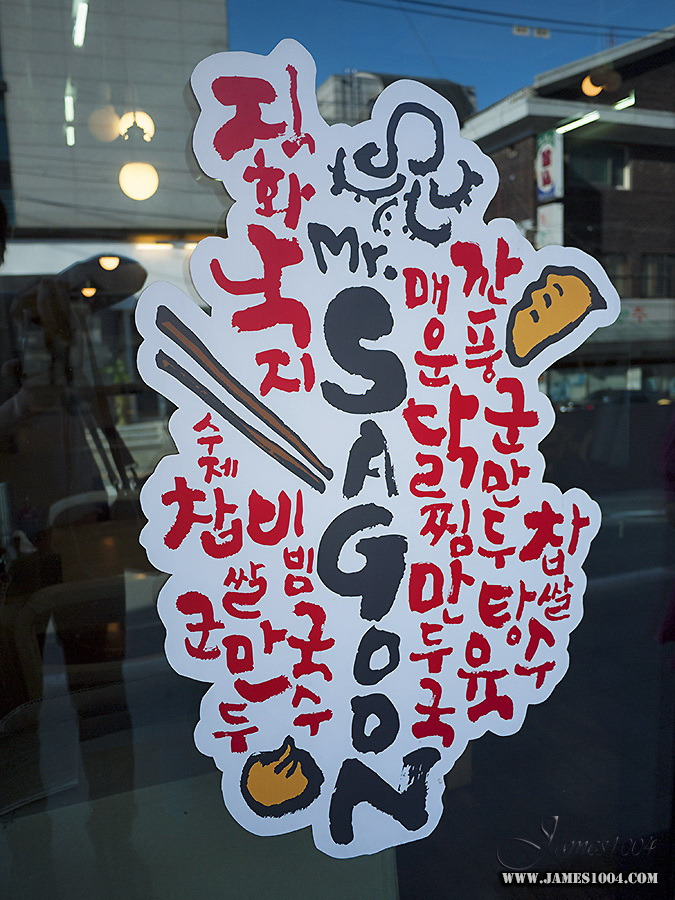 직화낙지
수제찹쌀군만두
비빔국수
Mr. SAGOON
매운닭찜만두국
깐풍군만두
찹쌀탕수육
James1004
WWW.JAMES1004.COM